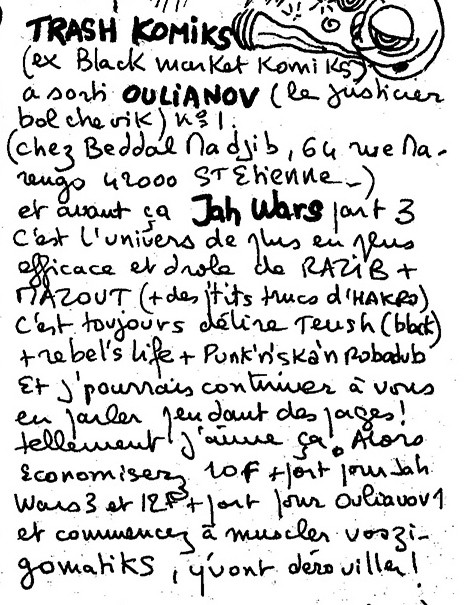 TRASH KOMIKS
(ex Black market Komiks)
a sorti OULIANOV (le justicier
bolchevik) n°1.
(chez Beddal Nadjib, 64 rue Ma-
rengo 42000 ST Etienne_)
et avant ça Jah Wars part 3
C'est l'univers de plus en plus
efficace et drole de RAZIB +
MAZOUT (+ des p'tits trucs d'HAKRO)
C'est toujours délire Teush (black)
+ rebel's life + Punk'n'ska'n Robadub
Et j'pourrais continuer à vous
en parler pendant des pages!
tellement j'aime ça. Alors
Economisez 10F + port pour Jah
Wars 3 et 12F + port pour Oulianov 1
et commencez à muscler vos zi-
gomatiks, y'vont dérouiller!